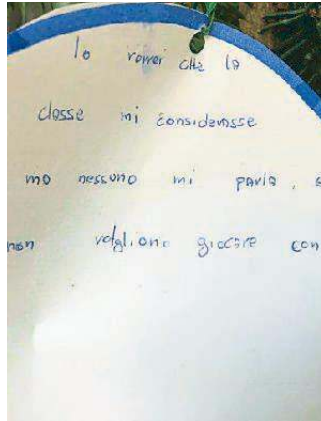 Io vorrei che la
classe mi considerasse
ma nessuno mi parla, e
non vogliono giocare con